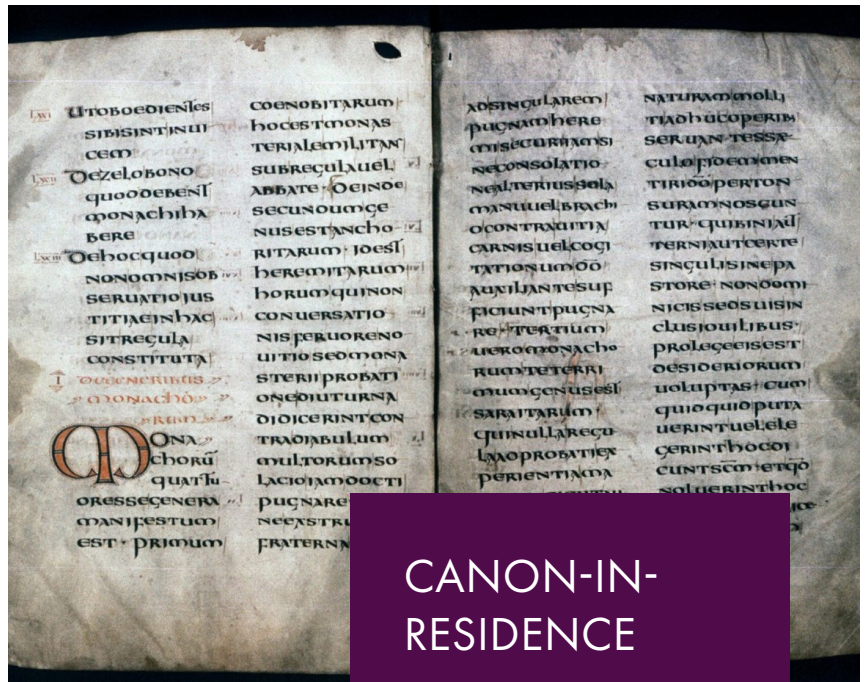 LXVI UTOBOEDIENTES
SIBISINTINUI
CEM
LXVII DEZELOBONO
QUODDEBENT
MONACHIHA
BERE
LXVIII DEHOCQUOD
NONOMNISOB
SERUATIOIUS
TITIAEINHAC
SITREGULA
CONSTITUTA
I DEGENERIBUS
MONACHO
RUM
MONA
CHORŪ
QUATTU
ORESSEGENERA
MANIFESTUM
EST · PRIMUM
COENOBITARUM
HOCESTMONAS
TERIALEMILITAN
SUBREGULAUEL
ABBATE · DEINDE
SECUNDUMGE
NUSESTANCHO
RITARUM · IDEST
HEREMITARUM
HORUMQUINON
CONUERSATIO
NISFERUORENO
UITIOSEDMONA
STERIIPROBATI
ONEDIUTURNA
DIDICERINTCON
TRADIABULUM
MULTORUMSO
LACIOIAMDOCTI
PUGNARE
NEEXSTRU
FRATERNA
ADSINGULAREM
PUGNAMHERE
MISECURIIAMSI
NECONSOLATIO
NEALTERIUSSOLA
MANUUELBRACHI
OCONTRAUITIA
CARNISUELCOGI
TATIONUMDŌ
AUXILIANTESUF
FICIUNTPUGNA
RE · TERTIUM
UEROMONACHO
RUMTETERRI
MUMGENUSEST
SARAITARUM
QUINULLAREGU
LAADPROBATIEX
PERIENTIAMA
NATURAMMOLLI
TIADHUCOPERIB
SERUANTESSAE
CULOFIDEMMEN
TIRIDŌPERTON
SURAMNOSCUN
TUR · QUIBINIAUT
TERNIAUTCERTE
SINGULISINEPA
STORE · NONDOMI
NICISSEDSUISIN
CLUSIOUILIBUS ·
PROLEGEEISEST
DESIDERIORUM
UOLUPTAS · CUM
QUIDQUIDPUTA
UERINTUELELE
GERINTHOCDI
CUNTSCM̄ETQD̄
NOLUERINTHOC
CANON-IN-
RESIDENCE